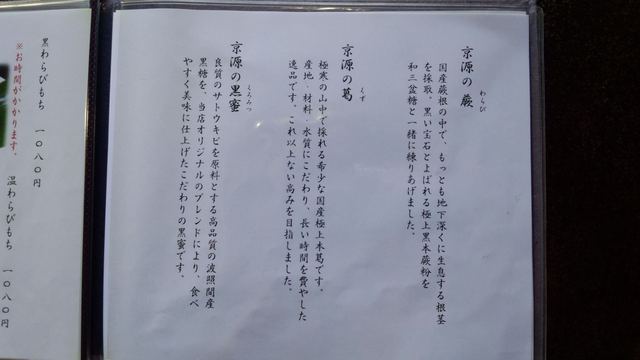 京源の蕨
わらび
国産蕨根の中で、もっとも地下深くに生息する根茎
を採取。黒い宝石とよばれる極上黒本蕨粉を
和三盆糖と一緒に練りあげました。
京源の葛
くず
極寒の山中で採れる希少な国産極上本葛です。
産地・材料・水質にこだわり、長い時間を費やした
逸品です。これ以上ない高みを目指しました。
京源の黒蜜
くろみつ
良質のサトウキビを原料とする高品質の波照間産
黒糖を、当店オリジナルのブレンドにより、食べ
やすく美味に仕上げたこだわりの黒蜜です。
黒わらびもち 一〇八〇円
※お時間がかかります。
温わらびもち 一〇八〇円